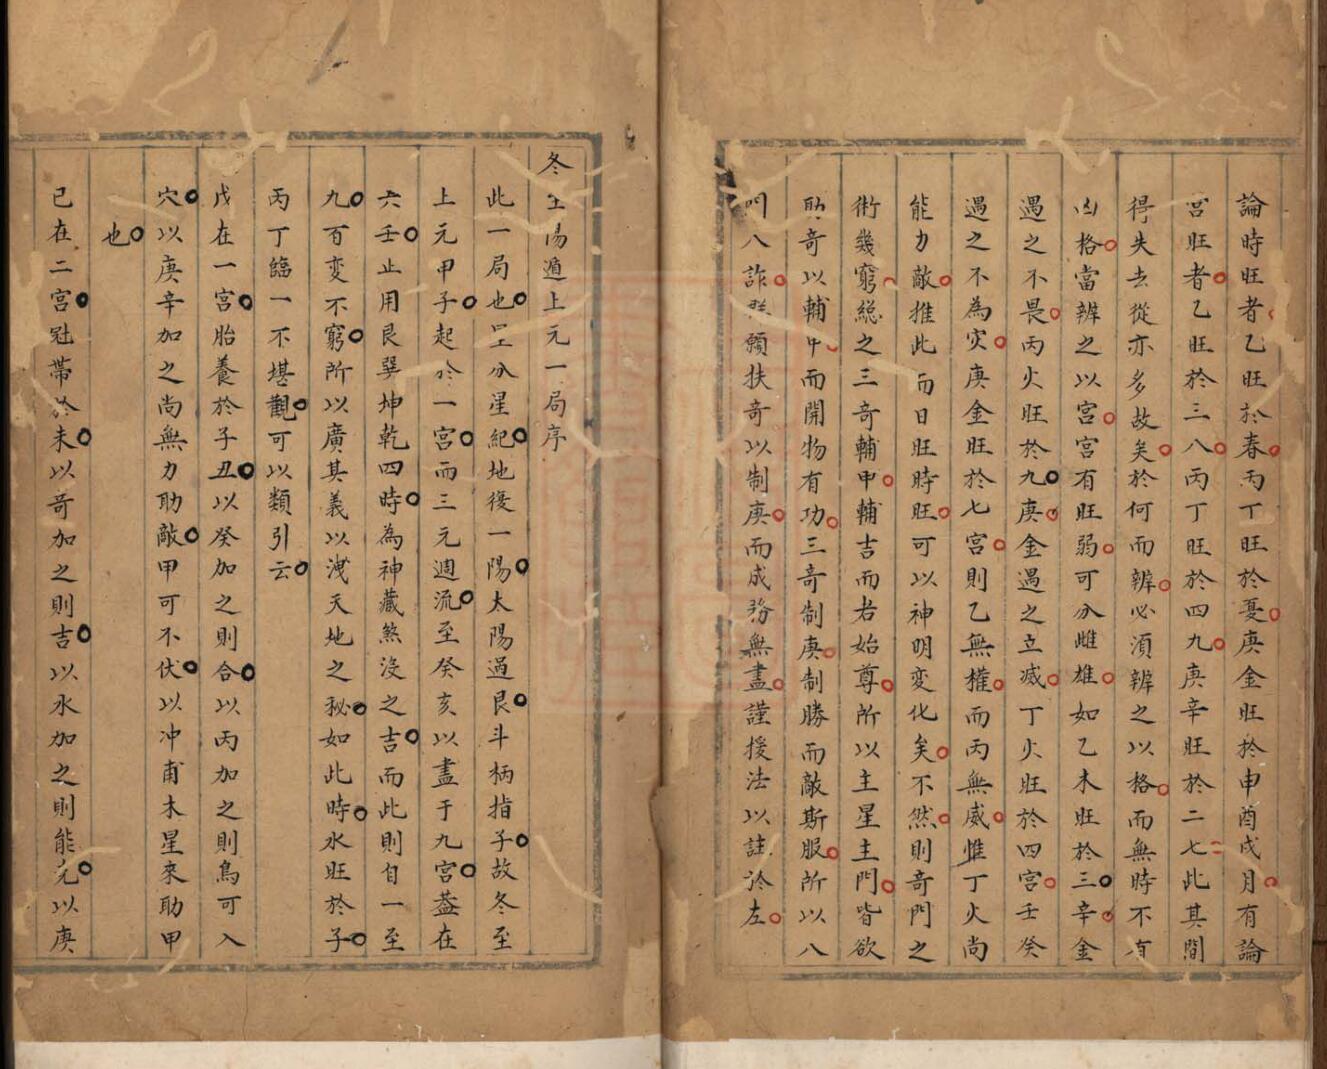 論時旺者乙旺於春丙丁旺於憂庚金旺於申酉戌月有論
宮旺者乙旺於三八丙丁旺於四九庚辛旺於二七此其間
得失去從亦多故矣於何而辨必湏辨之以格而無時不有
凶格當辨之以宮宮有旺弱可分雌雄如乙木旺於三辛金
遇之不畏丙火旺於九庚金遇之立滅丁火旺於四宮壬癸
遇之不為灾庚金旺於七宮則乙無權而丙無威惟丁火尚
能力敵推此而日旺時旺可以神明変化矣不然則奇門之
術幾窮総之三奇輔甲輔吉而若始尊所以主星主門皆欲
助奇以輔甲而開物有功三奇制庚制勝而敵斯服所以八
門八詐群願扶奇以制庚而成務無盡謹援法以註於左
冬至陽遁上元一局序
此一局也呈分星紀地復一陽太陽過艮斗柄指子故冬至
上元甲子起於一宮而三元週流至癸亥以盡于九宮葢在
六壬止用艮巽坤乾四時為神藏煞沒之吉而此則自一至
九百变不窮所以廣其義以洩天地之秘如此時水旺於子
丙丁臨一不堪觀可以類引云
戊在一宮胎養於子丑以癸加之則合以丙加之則鳥可入
穴以庚辛加之尚無力助敵甲可不伏以冲甫木星來助甲
也
已在二宮冠帶於未以奇加之則吉以水加之則能克以庚